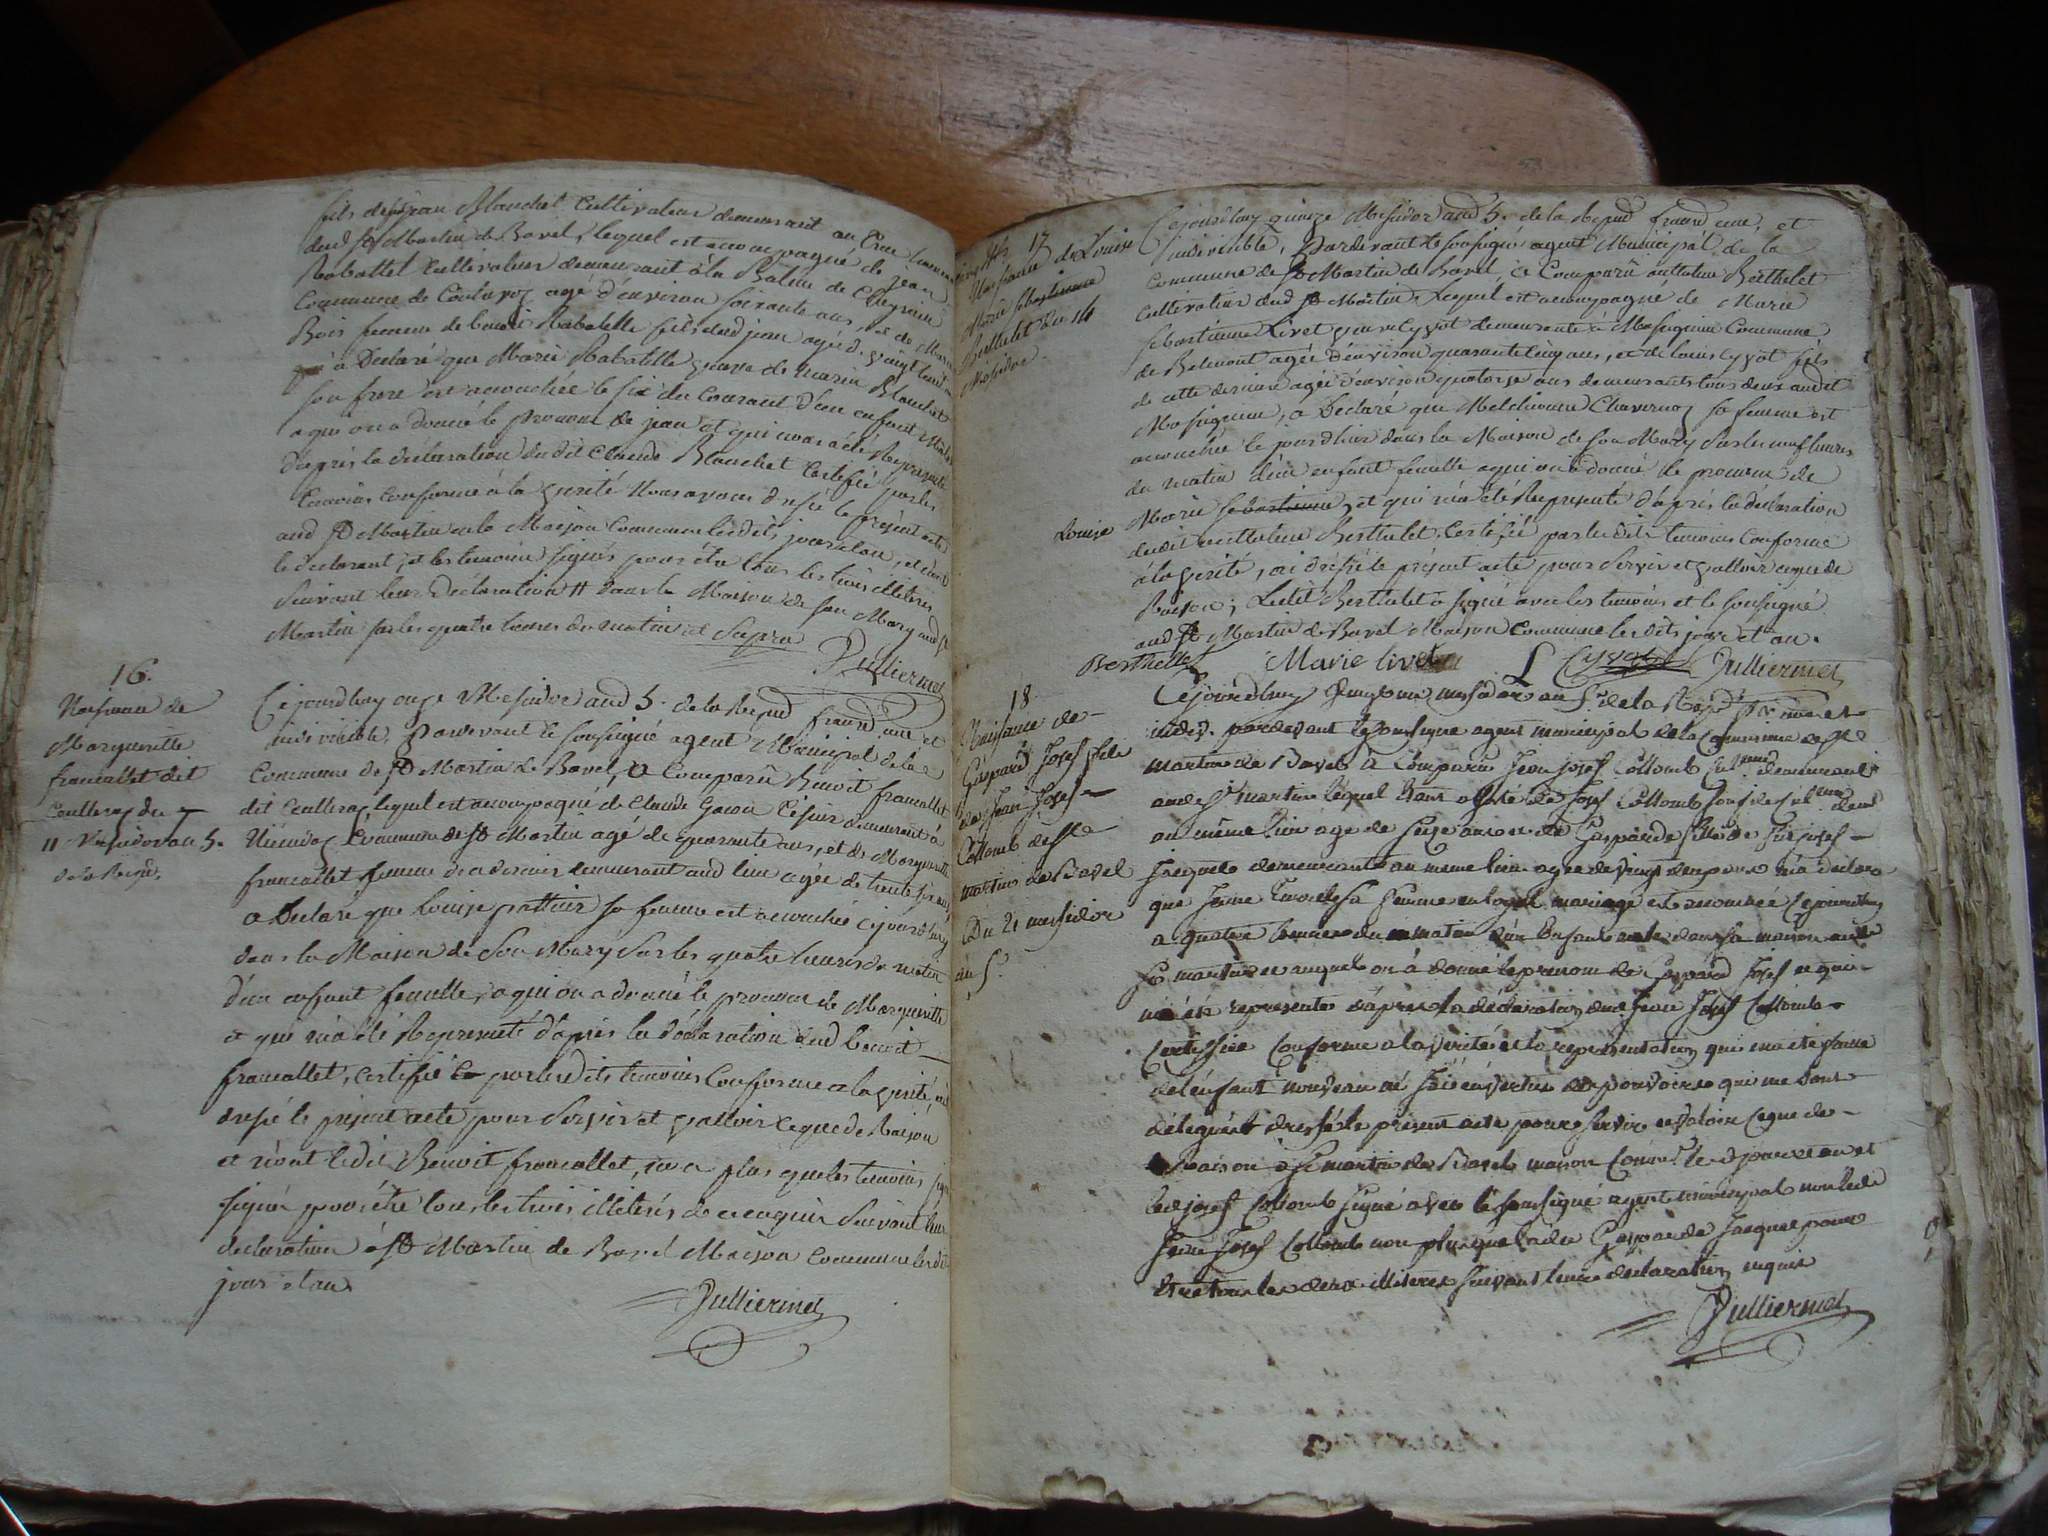 fils de feu jean Blanchet Cultivateur demeurant au
dud St Martin de Bavel, lequel est accompagné de jean
Rabattel Cultivateur demeurant à la Balme de Cheyrieu
Commune de agé d'environ soixante ans, et de Marie
Bois femme de benoit Rabatelle fils dud jean agée de vingt huit
à Declaré que Marie Rabatelle veuve de Marin Blanchet
son frere est accouchée le six du Courant d'un enfant Male
a qui on a donné le prenom de jean et qui nous a été Representé
d'après la déclaration du dit Claude Blanchet Certifié par les
temoins Conforme à la verité Nous avons dressé le présent acte
aud St Martin en la Maison Commune lesdits jour et an, et n'ont
le declarant, et les temoins signés pour être tous les trois illiteres
Suivant leur Déclaration # dans la Maison de son Mary aud St
Martin sur les quatre heures du matin et Supra
Julliermet
16.
Naissance de
Marguerite
francallet dit
Coulleraz du
11 Messidor an 5.
de la Repu.
Cejourdhuy onze Messidor and 5. de la Repud francd une et
indivisible, Pardevant le soussigné agent Municipal de la
Commune de St Martin de Bavel, à Comparû Benoit francallet
dit Culleraz lequel est accompagné de Claude demeurant à
Commune de St Martin agé de quarante ans, et de Marguerite
francallet femme de a dernier demeurant aud lieu agée de trente six ans,
a Declaré que Louise sa femme est accouchée cejourdhuy
dans la Maison de Son Mary Sur les quatre heures du matin
d'un enfant femelle, a qui on a donné le prenom de Marguerite
et qui m'a été Representé d'après la déclaration dud benoit
francallet, certifié par lesdits temoins Conforme a la verité, ai
dressé le present acte pour Servir et valloir ce que de Raison
et n'ont ledit Benoit francallet, non plus que les temoins
signés pour être tous les trois illiterés de ce enquis Suivant leur
declaration à St Martin de Bavel Maison Commune lesdits
jour et an
Julliermet
17
Naissance de Louise
Marie sebastienne
Berthelet du 14
Messidor
Cejourdhuy quinze Messidor and 5. de la Repud francd une, et
indivisible, Pardevant le soussigné agent Municipal de la
Commune de St Martin de Bavel, à Comparû anthelme Berthelet
Cultivateur dud St Martin Lequel est accompagné de Marie
sebastienne Livet veuve Cyvot demeurante à Massignieu Commune
de Belmont agée d'environ quarante cinq ans, et de louis Cyvot fils
de cette derniere agée d'environ quatorze ans demeurants tous deux audit
Massigneu, a Declaré que Melchionne Chavernoz sa femme est
accouchée le jour d'hier dans la Maison de son Mary Sur les neuf heures
du matin d'un enfant femelle a qui on a donné le prenom de
Louise
Marie sebastienne, et qui m'a été Representé d'après la declaration
dudit anthelme Berthelet, Certifié par les dits temoins Conforme
à la verité, ai dressé le présent acte pour Servir et valloir ce que de
Raison; Ledit Berthelet à signé avec les temoins et le soussigné
aud St Martin de Bavel Maison Commune les dits jour et an.
Berthellet Marie livet L Cyvot Julliermet
18
Naissance de
Gaspard Josef fils
de Jean Josef
Collomb de St
martin de Bavel
Du 21 messidor
an 5.
Cejourdhuy vingt un messidor an 5. de la Rep. fr. une et
indiv. pardevant le soussigné agent municipal de la Commune de St
martin de Bavel à Comparu Jean Josef Collomb demeurant
aud St martin lequel étant assisté de Josef Collomb
au même lieu agé de seize ans et de Gasparde fille de feu josef
Jacquet demeurante au meme lieu agée de vingt deux ans m'a declaré
que Jeane sa femme en loyal mariage est accouchée Cejourdhuy
a quatre heures du matin d'un Enfant male dans sa maison aud
St martin et auquel on à donné le prenom de Gaspard Josef et qui
m'a été representé d'après la déclaration dud Jean Josef Collomb
Certifiée Conforme a la vérité et la representation qui m'a été faite
de l'enfant nouveau né J'ai en vertu des pouvoirs qui me sont
délégués dressé le present acte pour servir et valoir ce que de
Raison à St martin de Bavel maison Comm. le d jour et an et
led josef Collomb signé avec le soussigné agent municipal non led
Jean Josef Collomb non plus que ladite Gasparde Jacquet pour
être tous les deux illiteres suivant leur déclaration enquis
Julliermet